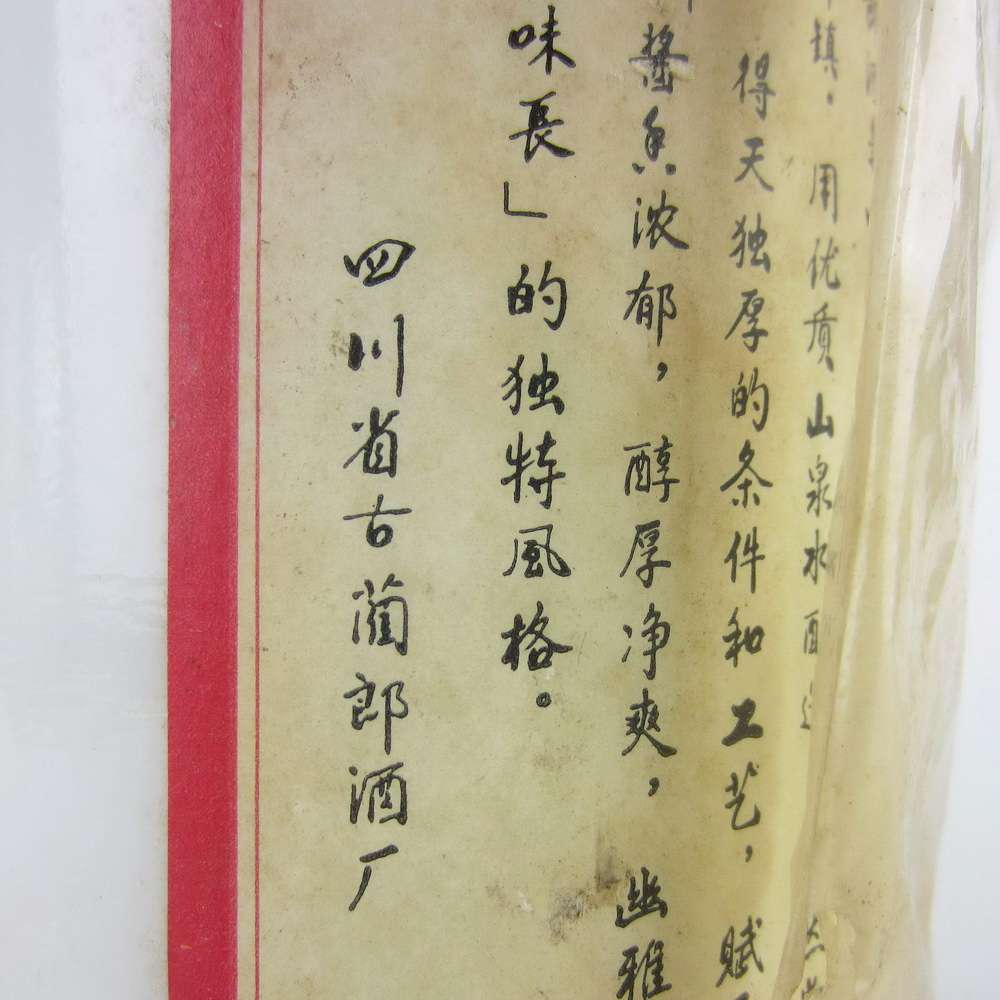 镇．用优质山泉水酿造
得天独厚的条件和工艺，赋
酱香浓郁，醇厚净爽，幽雅
味長」的独特風格。
四川省古藺郎酒厂